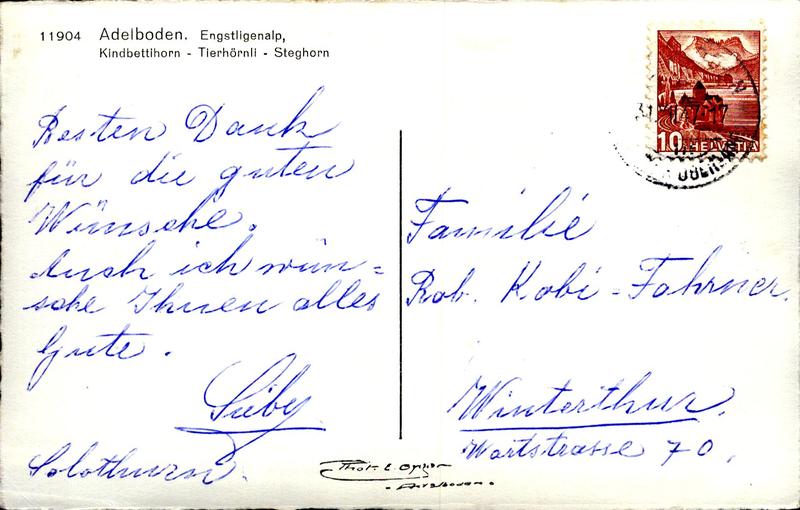 11904 Adelboden. Engstligenalp,
Kindbettihorn - Tierhörnli - Steghorn
Besten Dank
für die guten
Wünsche.
Auch ich wün=
sche Ihnen alles
Gute.
Solothurn.
10 HELVETIA
Familie
Rob. Kobi-Fahrner.
Winterthur.
Wartstrasse 70.
Phot. E. Gyger
- Adelboden -